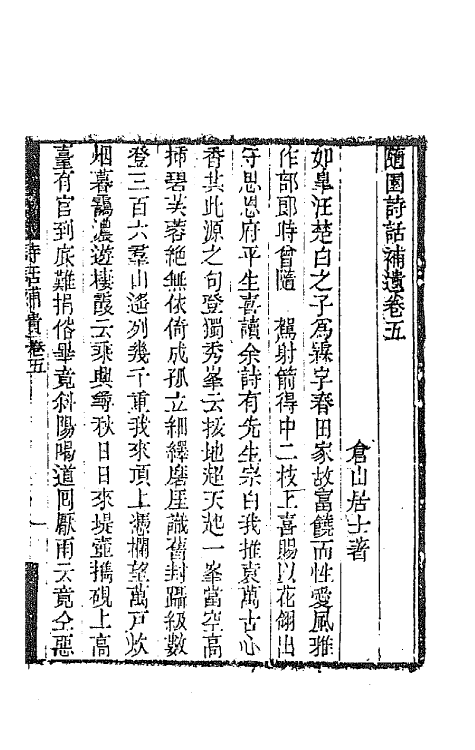 隨園詩話補遺卷五
倉山居士著
如皋汪楚白之子為霖字春田家故富饒而性愛風雅
作部郎時曾隨 駕射箭得中二枝上喜賜以花翎出
守思恩府平生喜讀余詩有先生宗白我推袁萬古心
香其此源之句登獨秀峯云拔地超天起一峯當空高
插碧芙蓉絶無依倚成孤立細繹磨崖識舊封躡級數
登三百六羣山遙列幾千重我來頂上憑欄望萬戸炊
烟暮靄濃遊棲霞云乘興尋秋日日來堤壺攜硯上高
臺有官到底難捐俗畢竟斜陽喝道囘厭雨云竟仝惡
詩話補遺 卷五 一